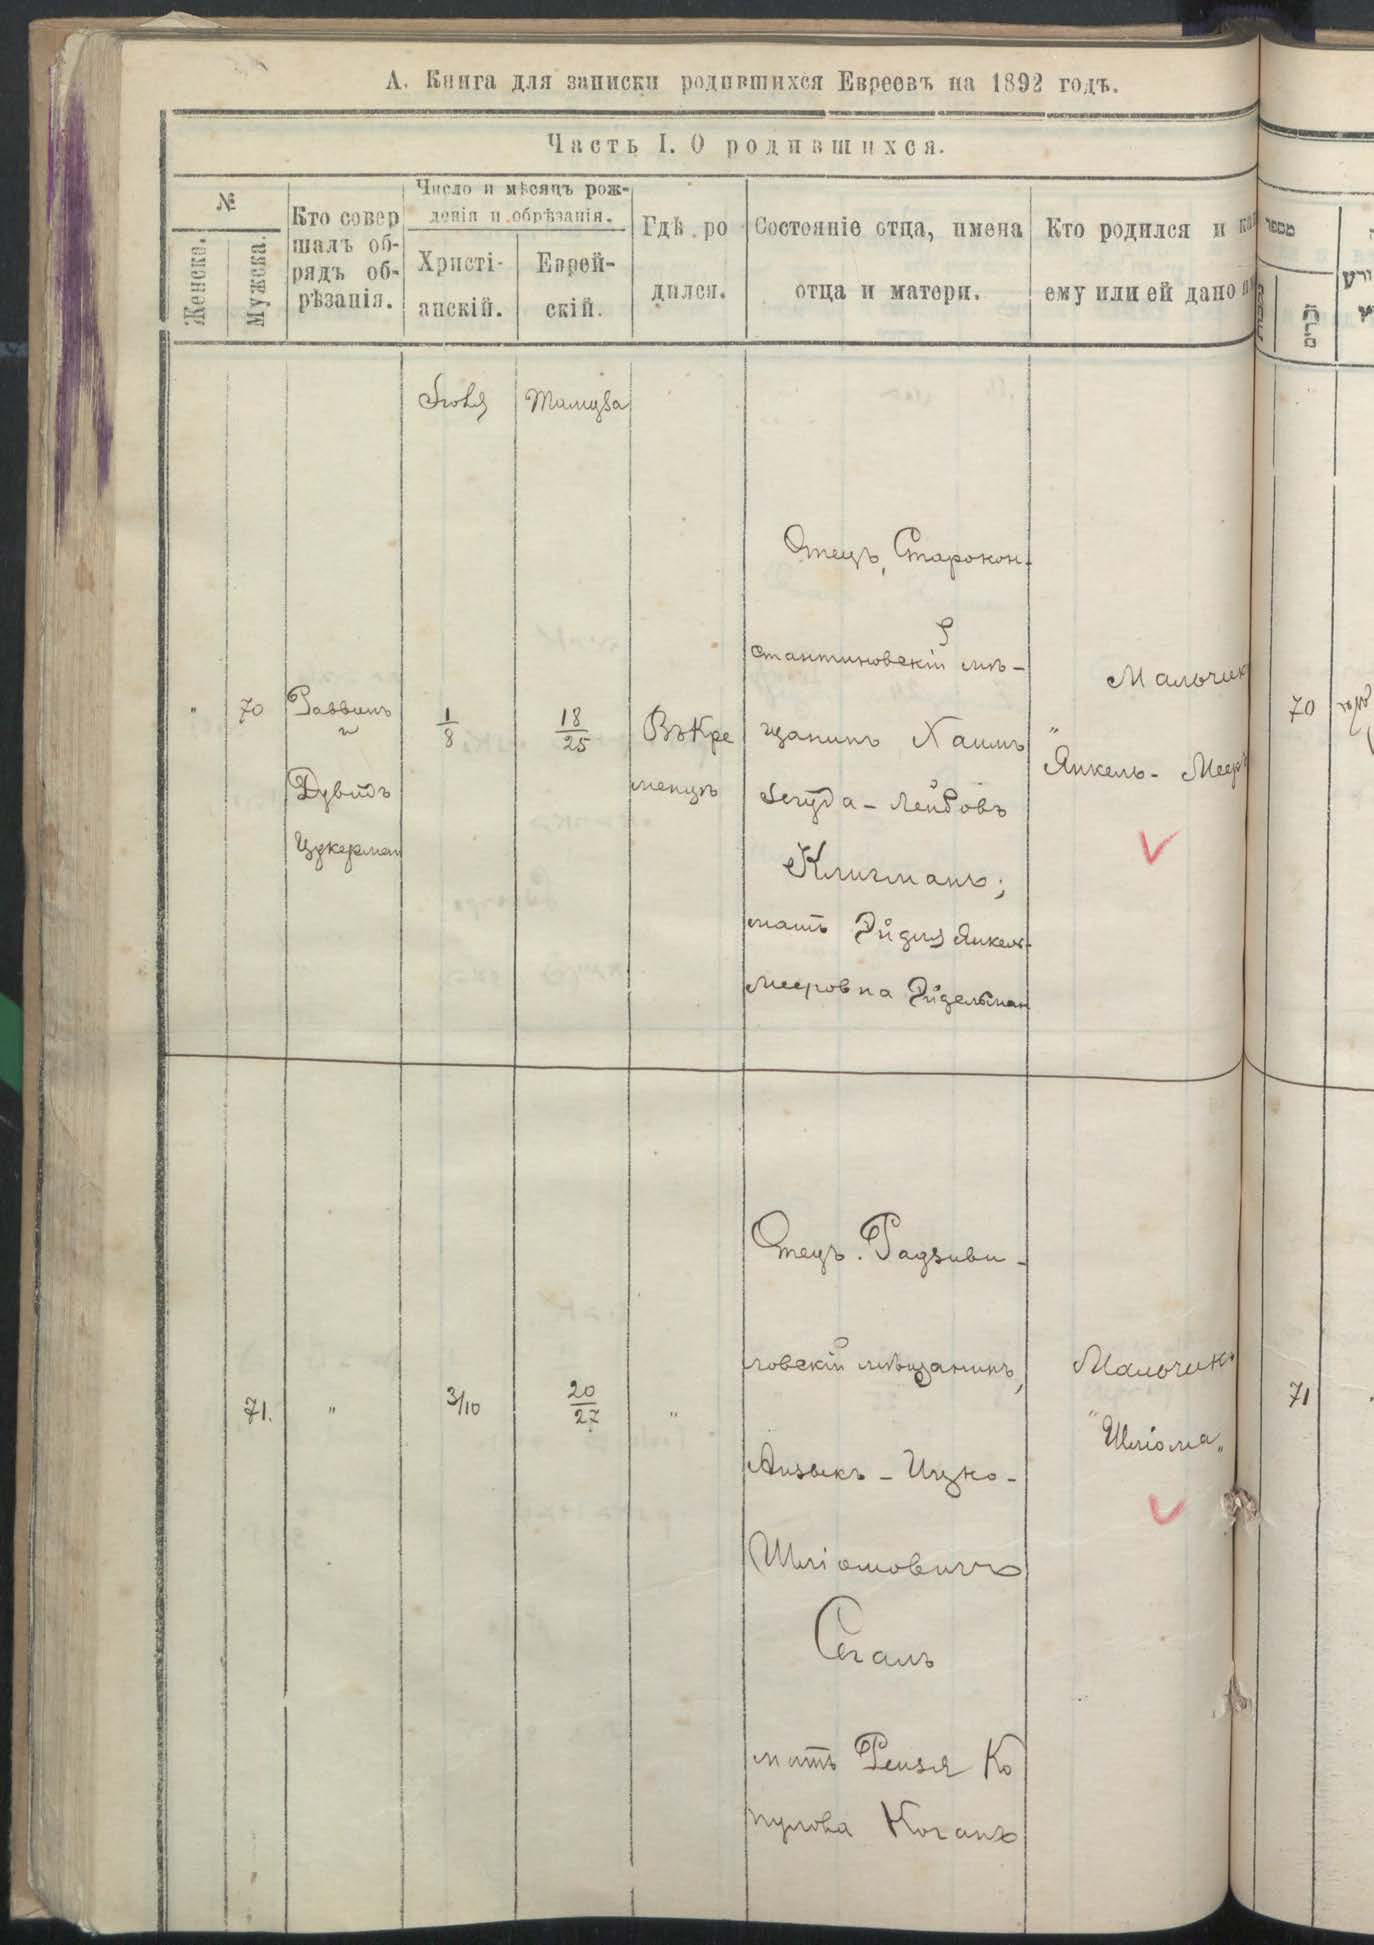 А. Книга для записки родившихся Евреевъ на 1892 годъ.
Часть I. О родившихся.
№
Женска.
Мужска.
Кто совер
шалъ об-
рядъ об-
рѣзанія.
Число и мѣсяцъ рож-
денія и обрѣзанія.
Христі-
анскій.
Еврей-
скій.
Гдѣ ро
дился.
Состояніе отца, имена
отца и матери.
Кто родился и
ему или ей дано
מספר
זכרים
Іюля
Тамуза
"
70
Раввинъ
и
Дувидъ
Цукерман
1
8
18
25
Въ Кре
менцѣ
Отецъ, Старокон-
стантиновскій мѣ-
щанинъ Хаимъ
Іегуда-Лейбовъ
Клигманъ;
мать Эйдля Янкел-
Мееровна Эйдельман
Мальчик
"Янкель-Мееръ
70
71.
"
3/10
20
27
"
Отецъ. Радзиви-
ловскій мѣщанинъ,
Аизыкъ-Ицко-
Шліомовичъ
Сегалъ
мать Рейзя Ко
пулова Коганъ
Мальчикъ
"Шліома"
71